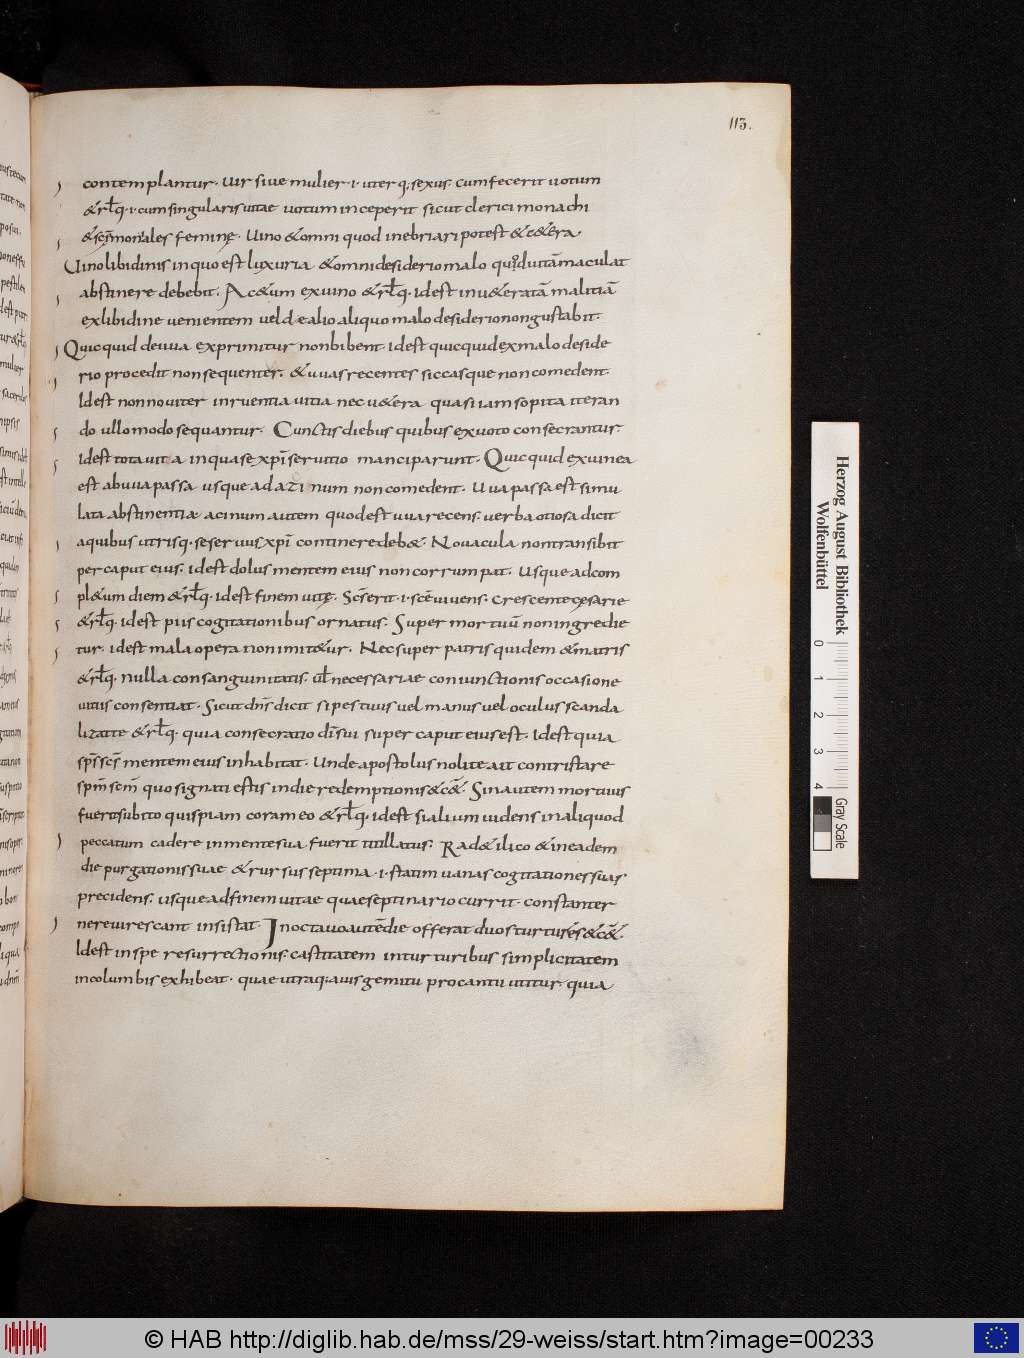 113.
contemplantur. Uir siue mulier .i. uterq; sexus. cum fecerit uotum
& rl̄q. i. cum singularis uitae uotum inceperit sicut clerici monachi
& sc̄ȩmoniales feminȩ. Uino & omni quod inebriari potest & c&era.
Uino libidinis in quo est luxuria & omni desiderio malo quod uitā maculat
abstinere debebit. Ac&um ex uino & rl̄q. idest inu&eratā malitiā
ex libidine uenientem uel de alio aliquo malo desiderio non gustabit.
Quicquid de uua exprimitur non bibent idest quicquid ex malo deside
rio procedit non sequenter. & uuas recentes siccasque non comedent.
Idest non nouiter inruentia uitia nec u&era quasi iam sopita iteran
do ullo modo sequantur. Cunctis diebus quibus ex uoto consecrantur.
Idest tota uita in qua se xp̄i seruitio manciparunt. Quicquid ex uinea
est ab uua passa usque ad acinum non comedent. Uua passa est simu
lata abstinentia acinum autem quod est uua recens. uerba otiosa dicit
a quibus utrisq. se seruus xp̄i continere deb&. Nouacula non transibit
per caput eius. idest dolus mentem eius non corrumpat. Usque ad com
pl&um diem & rl̄q. idest finem uitȩ. Sc̄s erit .i. sc̄e uiuens. crescente cȩsarie
& rl̄q. idest piis cogitationibus ornatus. Super mortuū non ingredie
tur. idest mala opera non imit&ur. Nec super patris quidem & matris
& rl̄q. nulla consanguinitatis. ul̄ necessariae coniunctionis occasione
uitiis consentiat. Sicut dn̄s dicit si pes tuus uel manus uel oculus scanda
lizat te & rl̄q. quia consecratio dī sui super caput eius est. Idest quia
sp̄s sc̄s mentem eius inhabitat. Unde apostolus nolite ait contristare
sp̄m sc̄m quo signati estis in die redemptionis & c&̄. Sin autem mortuus
fuerit subito quispiam coram eo & rl̄q. idest si alium uidens in aliquod
peccatum cadere in mente sua fuerit titillatus. Rad& ilico & in eadem
die purgationis suae & rursus septima .i. statim uanas cogitationes suas
precidens. usque ad finem uitae quae septinario currit. constanter
ne reuirescant insistat. In octauo autē die offerat duos turtures & c&̄.
Idest in spe resurrectionis. castitatem in turturibus simplicitatem
in columbis exhibeat. quae utraq; auis gemitu pro cantu utitur quia
Herzog August Bibliothek
Wolfenbüttel
0 1 2 3 4
Gray Scale
© HAB http://diglib.hab.de/mss/29-weiss/start.htm?image=00233